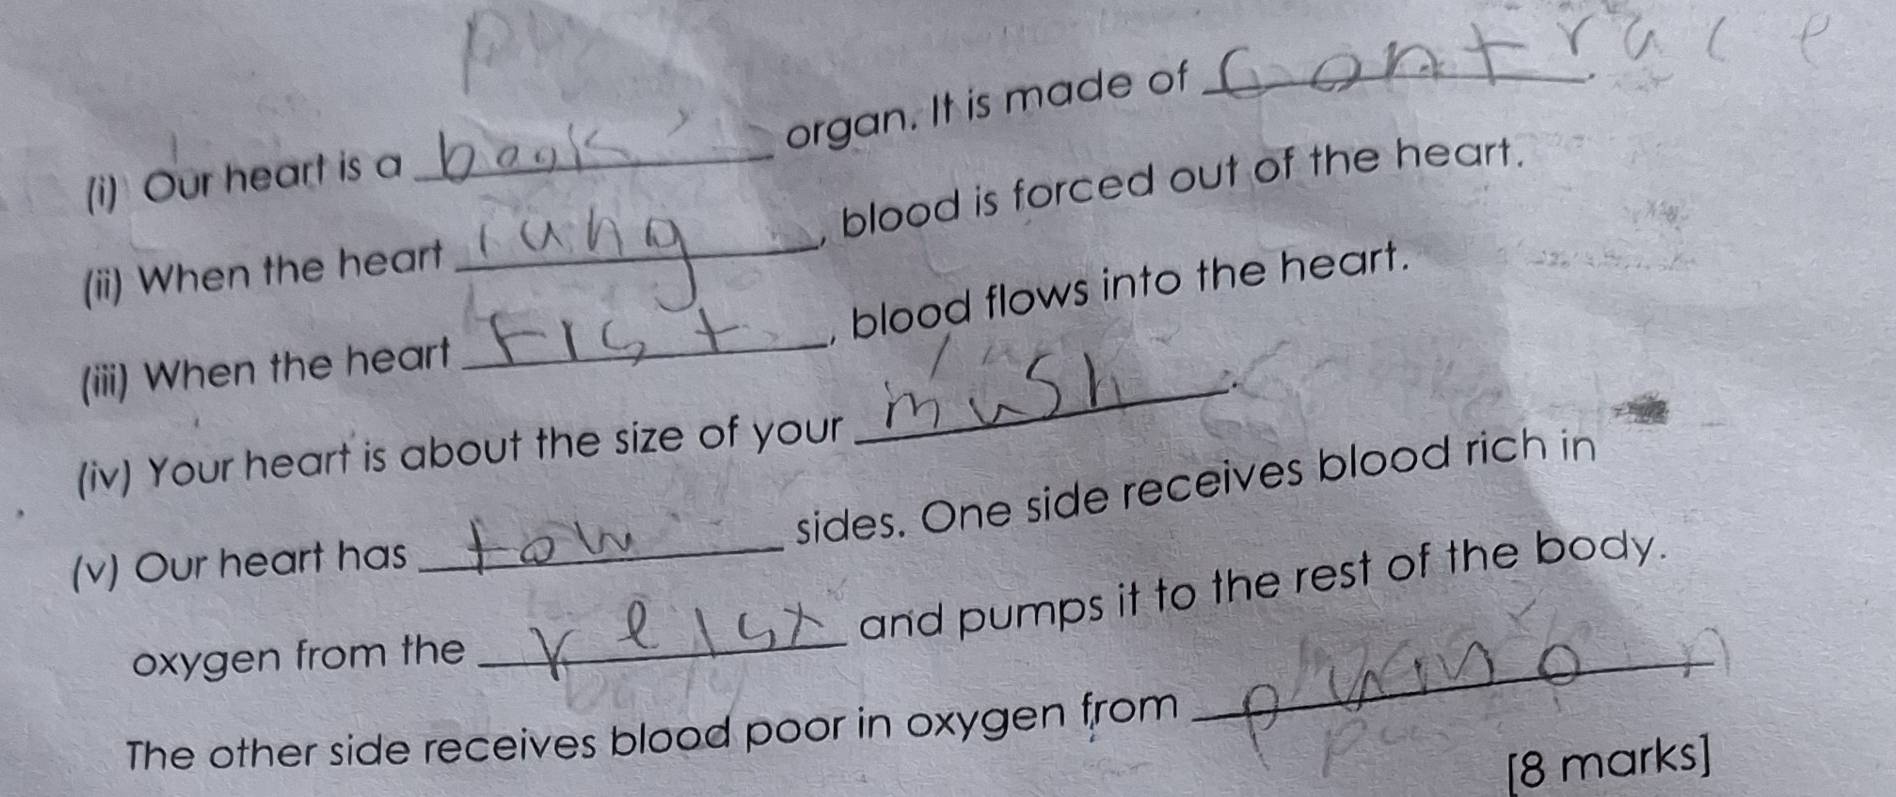 (i) Our heart is a book organ. It is made of Contrac e.
(ii) When the heart lung, blood is forced out of the heart.
(iii) When the heart Fist, blood flows into the heart.
(iv) Your heart is about the size of your mush.
(v) Our heart has tow sides. One side receives blood rich in
oxygen from the relst and pumps it to the rest of the body.
The other side receives blood poor in oxygen from
[8 marks]